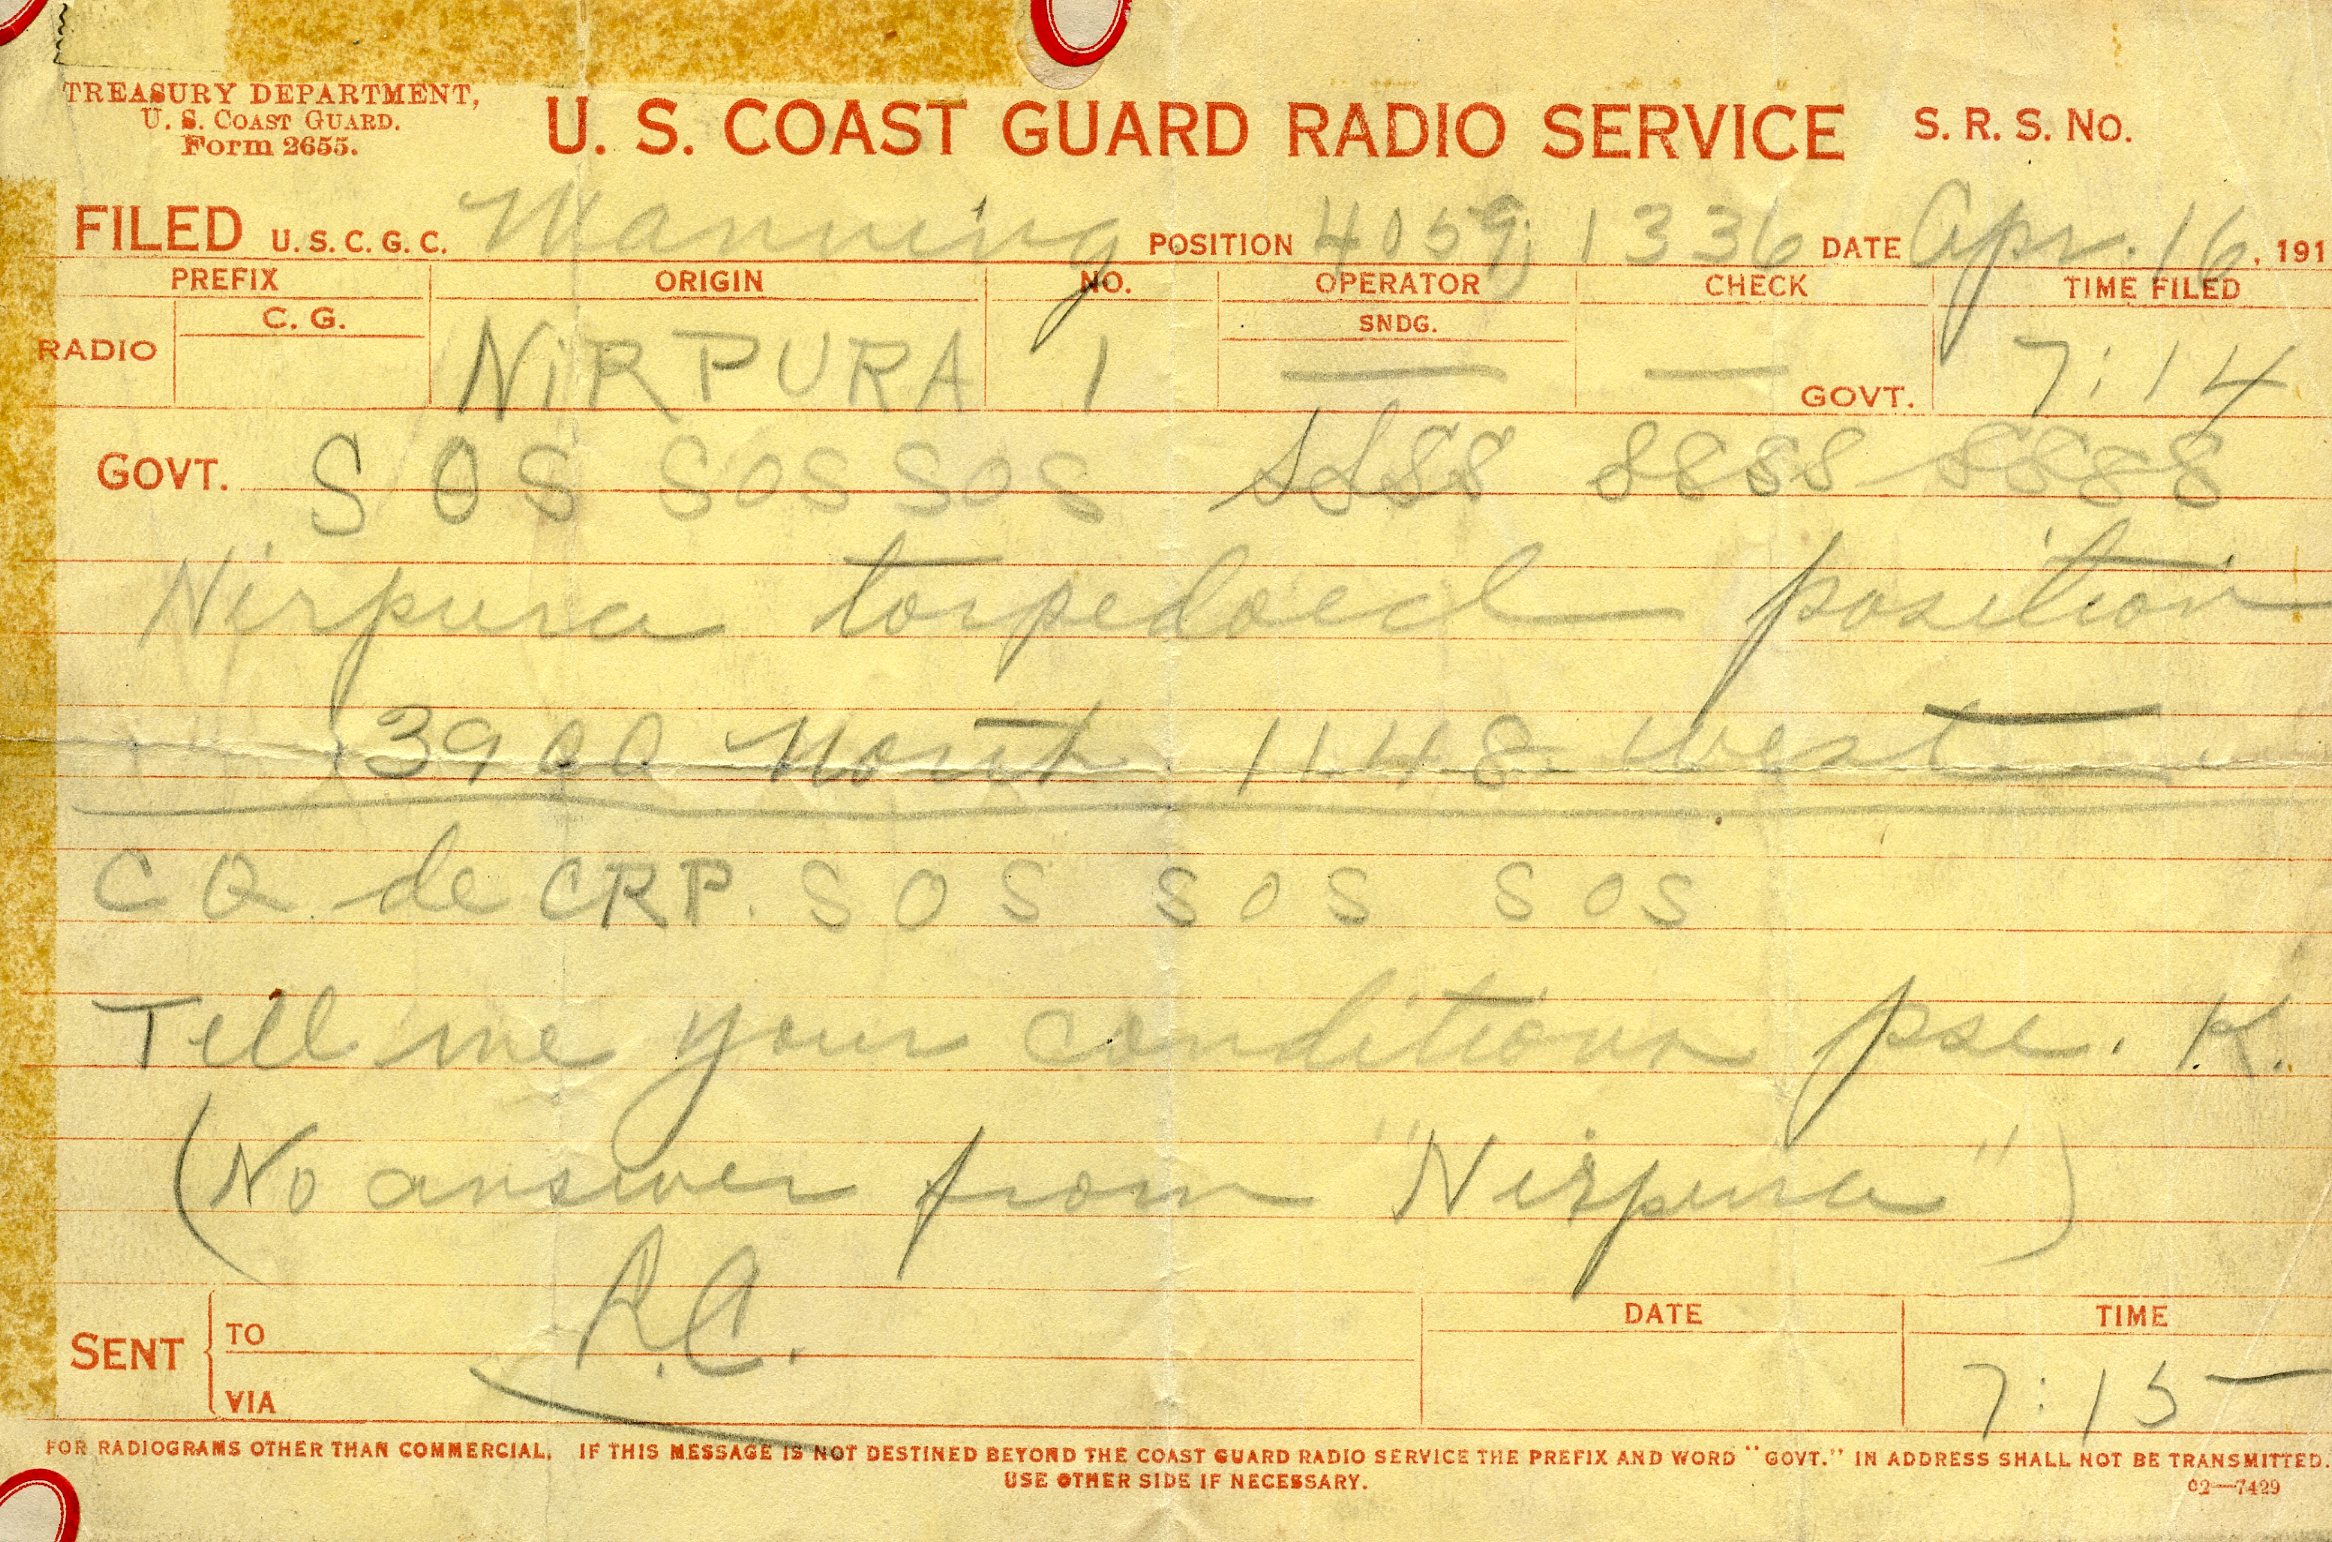 TREASURY DEPARTMENT,
U. S. COAST GUARD.
Form 2655.
U. S. COAST GUARD RADIO SERVICE
S. R. S. NO.
FILED U. S. C. G. C. Manning POSITION 4059; 1336 DATE Apr. 16, 191
PREFIX ORIGIN NO. OPERATOR CHECK TIME FILED
C. G. SNDG.
RADIO NiRPURA 1 — — GOVT. 7:14
GOVT. S O S SOS SOS SSSS SSSS SSSS
Nirpura torpedoed position
39 00 North 1148 West
C Q de CRP. S O S S O S S O S
Tell me your conditions pse. K.
(No answer from "Nirpura")
R.C.
SENT TO DATE TIME
VIA 7:15
FOR RADIOGRAMS OTHER THAN COMMERCIAL. IF THIS MESSAGE IS NOT DESTINED BEYOND THE COAST GUARD RADIO SERVICE THE PREFIX AND WORD "GOVT." IN ADDRESS SHALL NOT BE TRANSMITTED.
USE OTHER SIDE IF NECESSARY.
02—7429